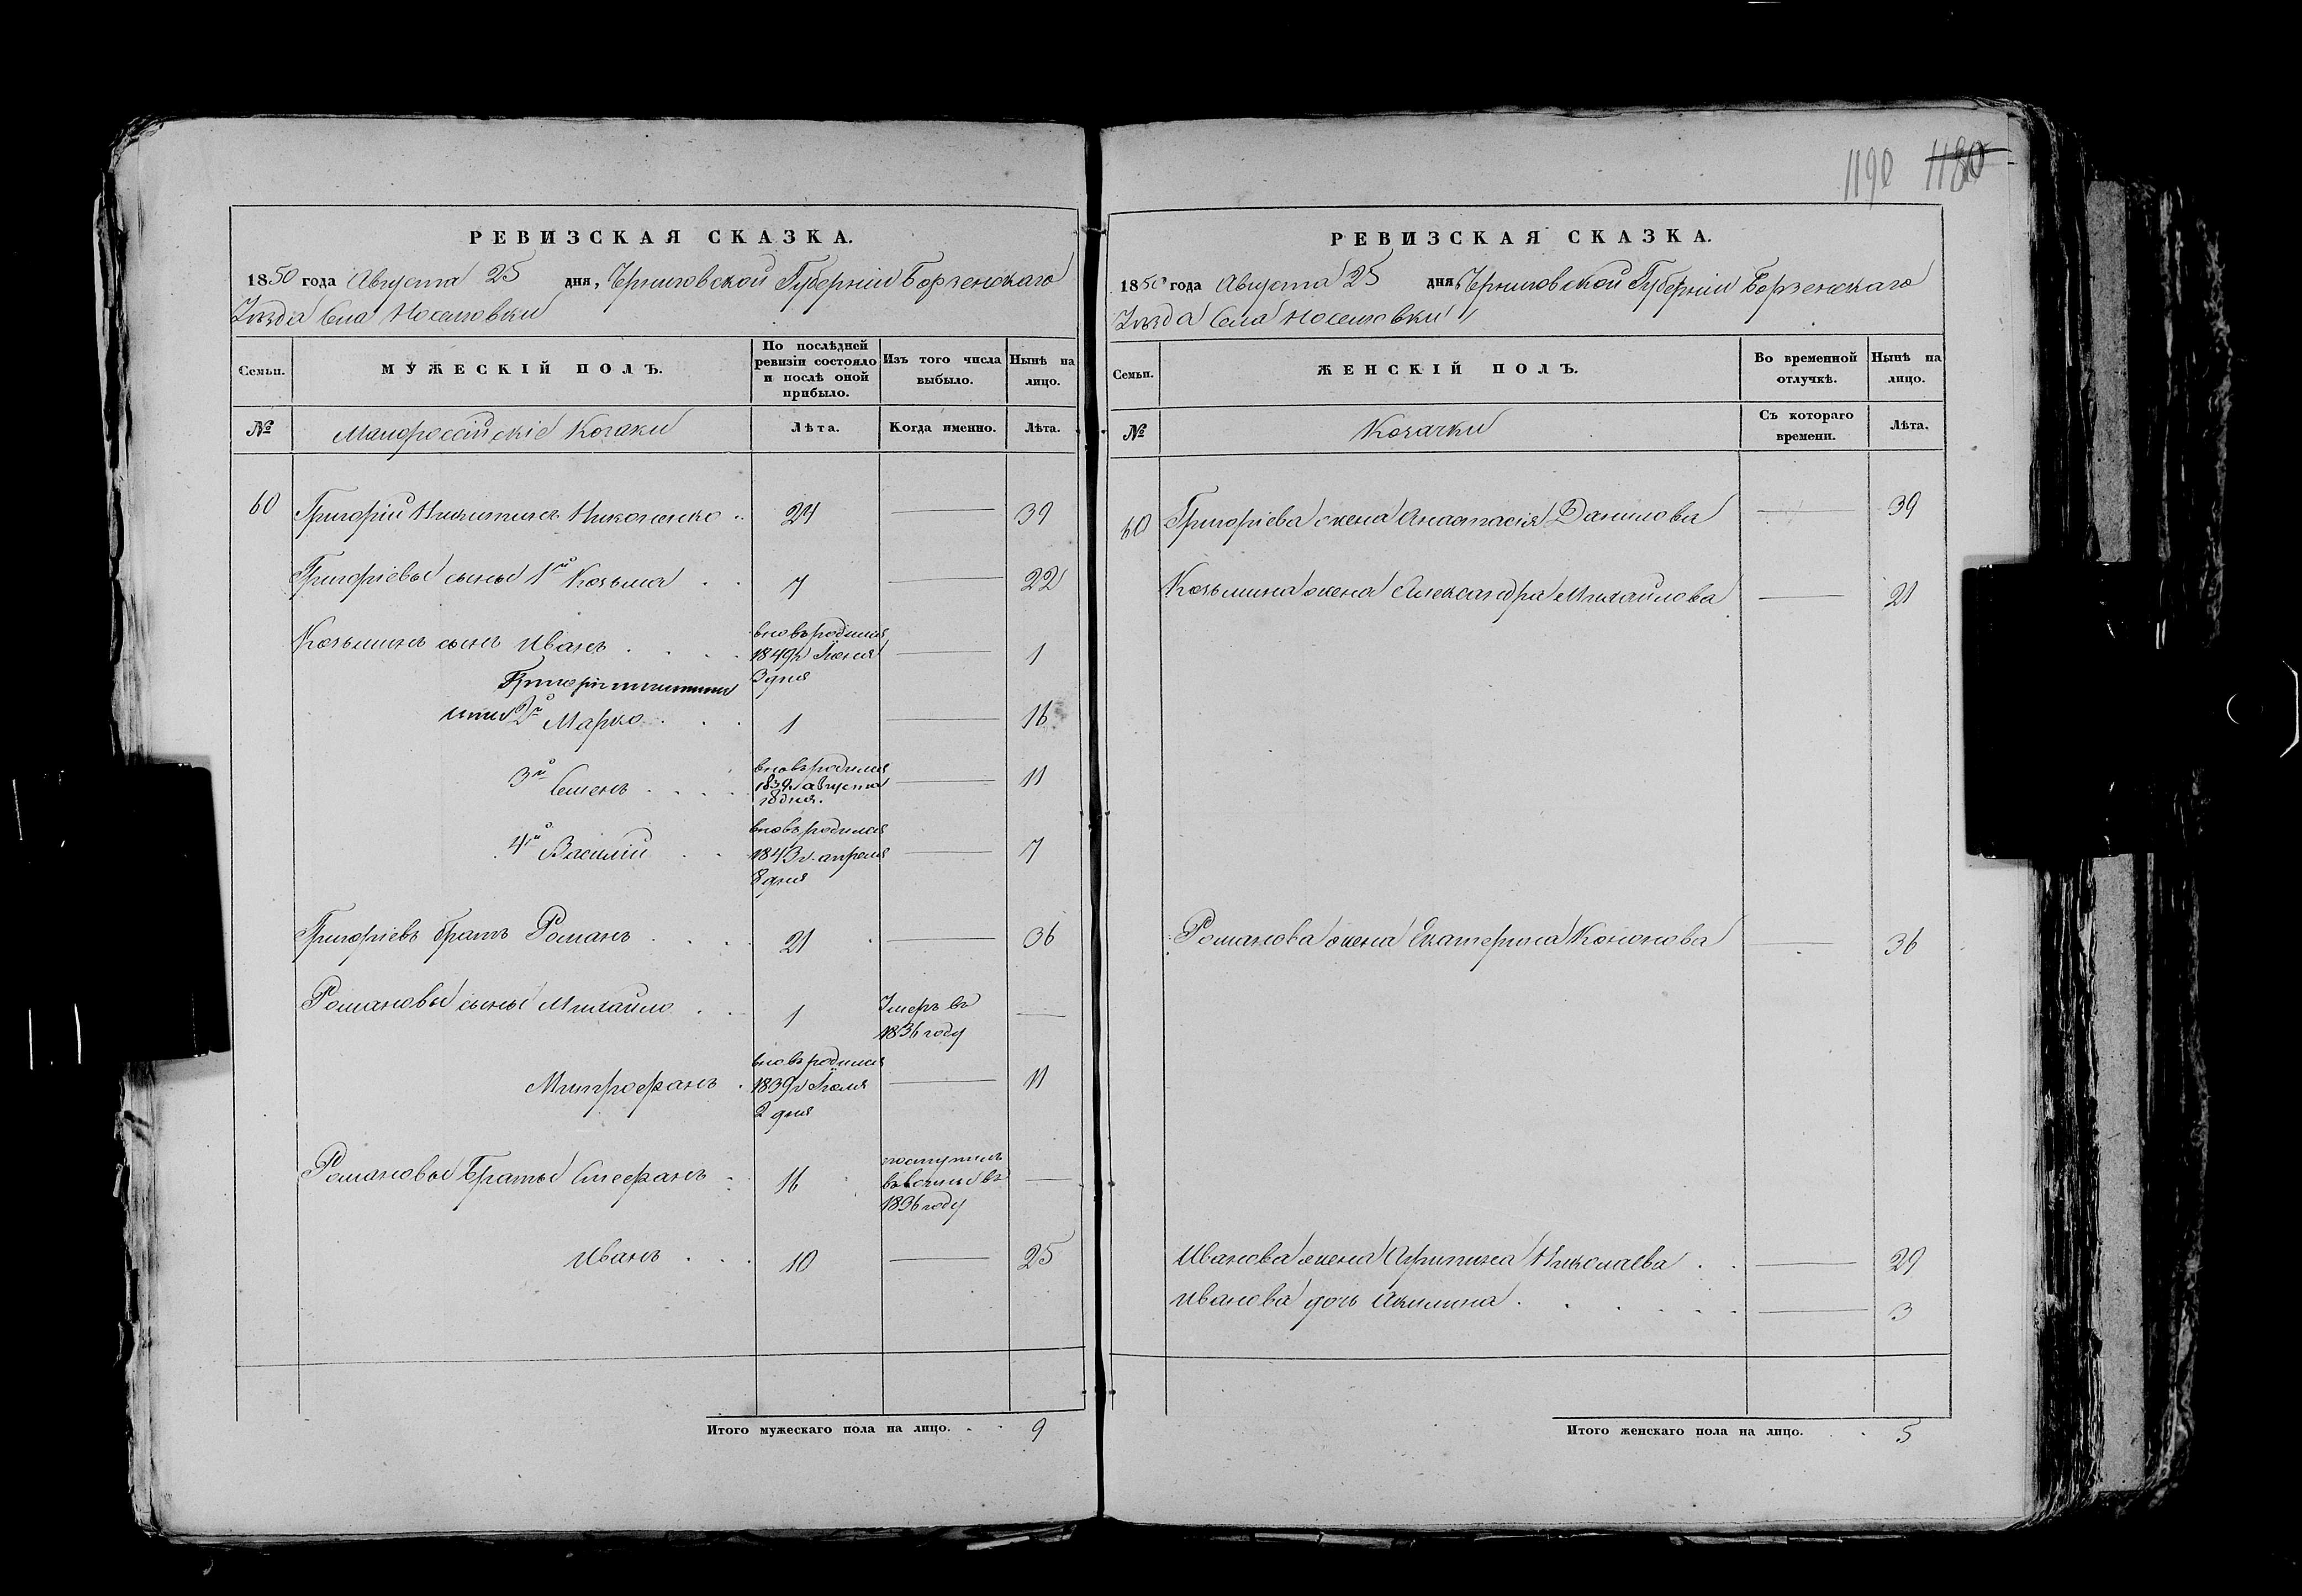 1190 1180
РЕВИЗСКАЯ СКАЗКА.
1850 года Августа 25 дня, Черниговской Губерніи Борзенскаго
Уѣзда Села Носеловки
Семьи.
МУЖЕСКІЙ ПОЛЪ.
По послѣдней
ревизіи состояло
и послѣ оной
прибыло.
Изъ того числа
выбыло.
Нынѣ на
лицо.
№
Малороссійскіе Козаки
Лѣта.
Когда именно.
Лѣта.
60 Григорій Никитинъ Николенко 24 39
Григоріевы сыны 1й Козьма 7 22
Козьминъ сынъ Иванъ вновь родился
1849г Іюня
3 дня 1
2й Марко 1 16
3й Семенъ вновь родился
1839г августа
18 дня. 11
4й Василій вновь родился
1843г. апреля
8 дня 7
Григоріевъ братъ Романъ 21 36
Романовы сыны Михайло 1 Умеръ въ
1836 году
Митрофанъ вновь родился
1839г Іюля
2 дня 11
Романовы Братья Стефанъ 16 поступилъ
въ въ
1836 году
Иванъ 10 25
Итого мужескаго пола на лицо. 9
РЕВИЗСКАЯ СКАЗКА.
1850 года Августа 25 дня Черниговской Губерніи Борзенскаго
Уѣзда Села Носеловки
Семьи.
ЖЕНСКІЙ ПОЛЪ.
Во временной
отлучкѣ.
Нынѣ на
лицо.
№
Козачки
Съ котораго
времени.
Лѣта.
60 Григоріева жена Анастасія Данилова 39
Козьмина жена Александра Михайлова 21
Романова жена Екатерина Кононова 36
Иванова жена Агрипина Николаева 29
Иванова дочь Акилина 3
Итого женскаго пола на лицо. 5